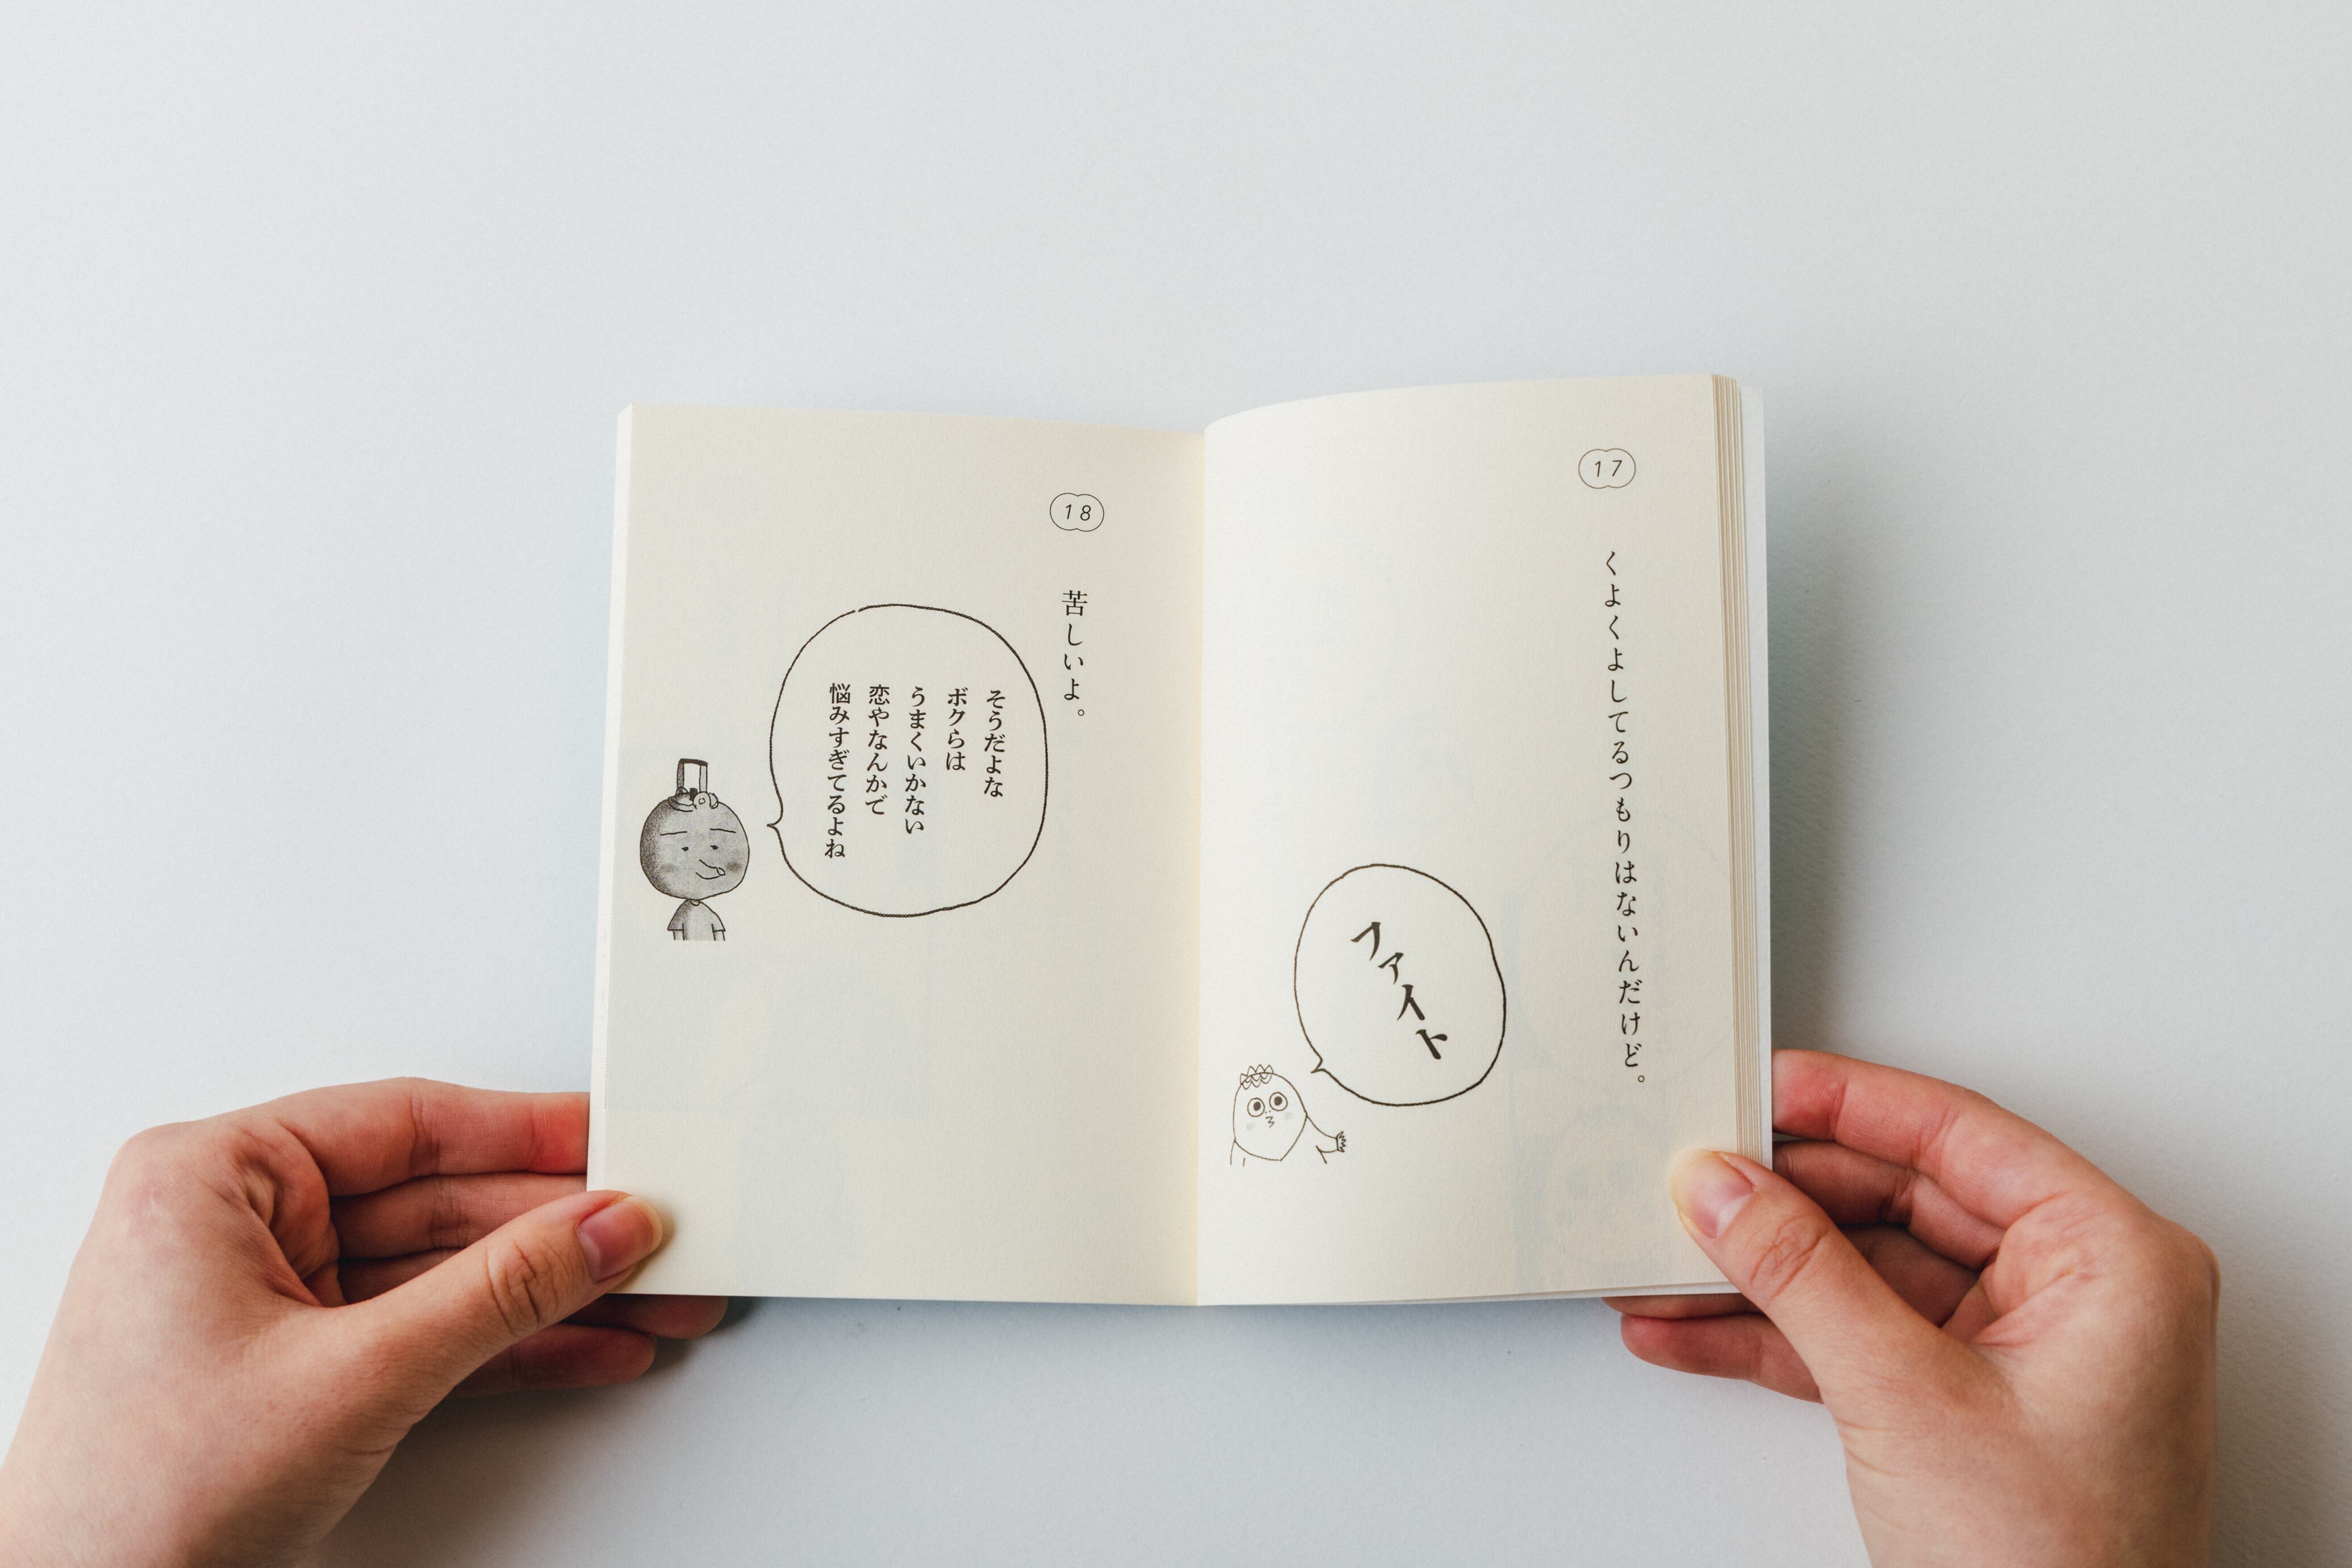 17
くよくよしてるつもりはないんだけど。
ファイト
18
苦しいよ。
そうだよな
ボクらは
うまくいかない
恋やなんかで
悩みすぎてるよね